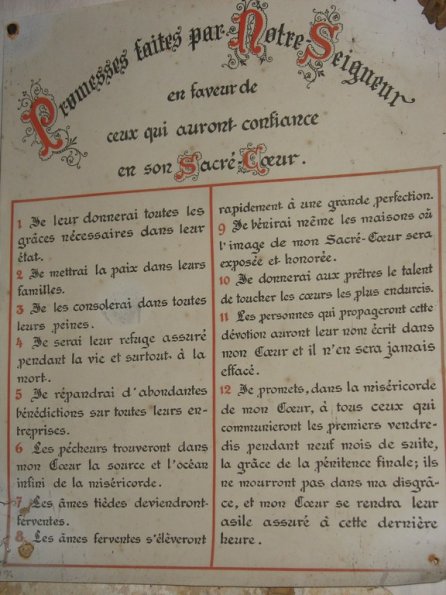 Promesses faites par Notre Seigneur
en faveur de
ceux qui auront confiance
en son Sacré-Cœur.
1 Je leur donnerai toutes les
grâces nécessaires dans leur
état.
2 Je mettrai la paix dans leurs
familles.
3 Je les consolerai dans toutes
leurs peines.
4 Je serai leur refuge assuré
pendant la vie et surtout à la
mort.
5 Je répandrai d'abondantes
bénédictions sur toutes leurs en-
treprises.
6 Les pécheurs trouveront dans
mon Cœur la source et l'océan
infini de la miséricorde.
7 Les âmes tièdes deviendront
ferventes.
8 Les âmes ferventes s'élèveront
rapidement à une grande perfection.
9 Je bénirai même les maisons où
l'image de mon Sacré-Cœur sera
exposée et honorée.
10 Je donnerai aux prêtres le talent
de toucher les cœurs les plus endurcis.
11 Les personnes qui propageront cette
dévotion auront leur nom écrit dans
mon Cœur et il n'en sera jamais
effacé.
12 Je promets, dans la miséricorde
de mon Cœur, à tous ceux qui
communieront les premiers vendre-
dis pendant neuf mois de suite,
la grâce de la pénitence finale; ils
ne mourront pas dans ma disgrâ-
ce, et mon Cœur se rendra leur
asile assuré à cette dernière
heure.